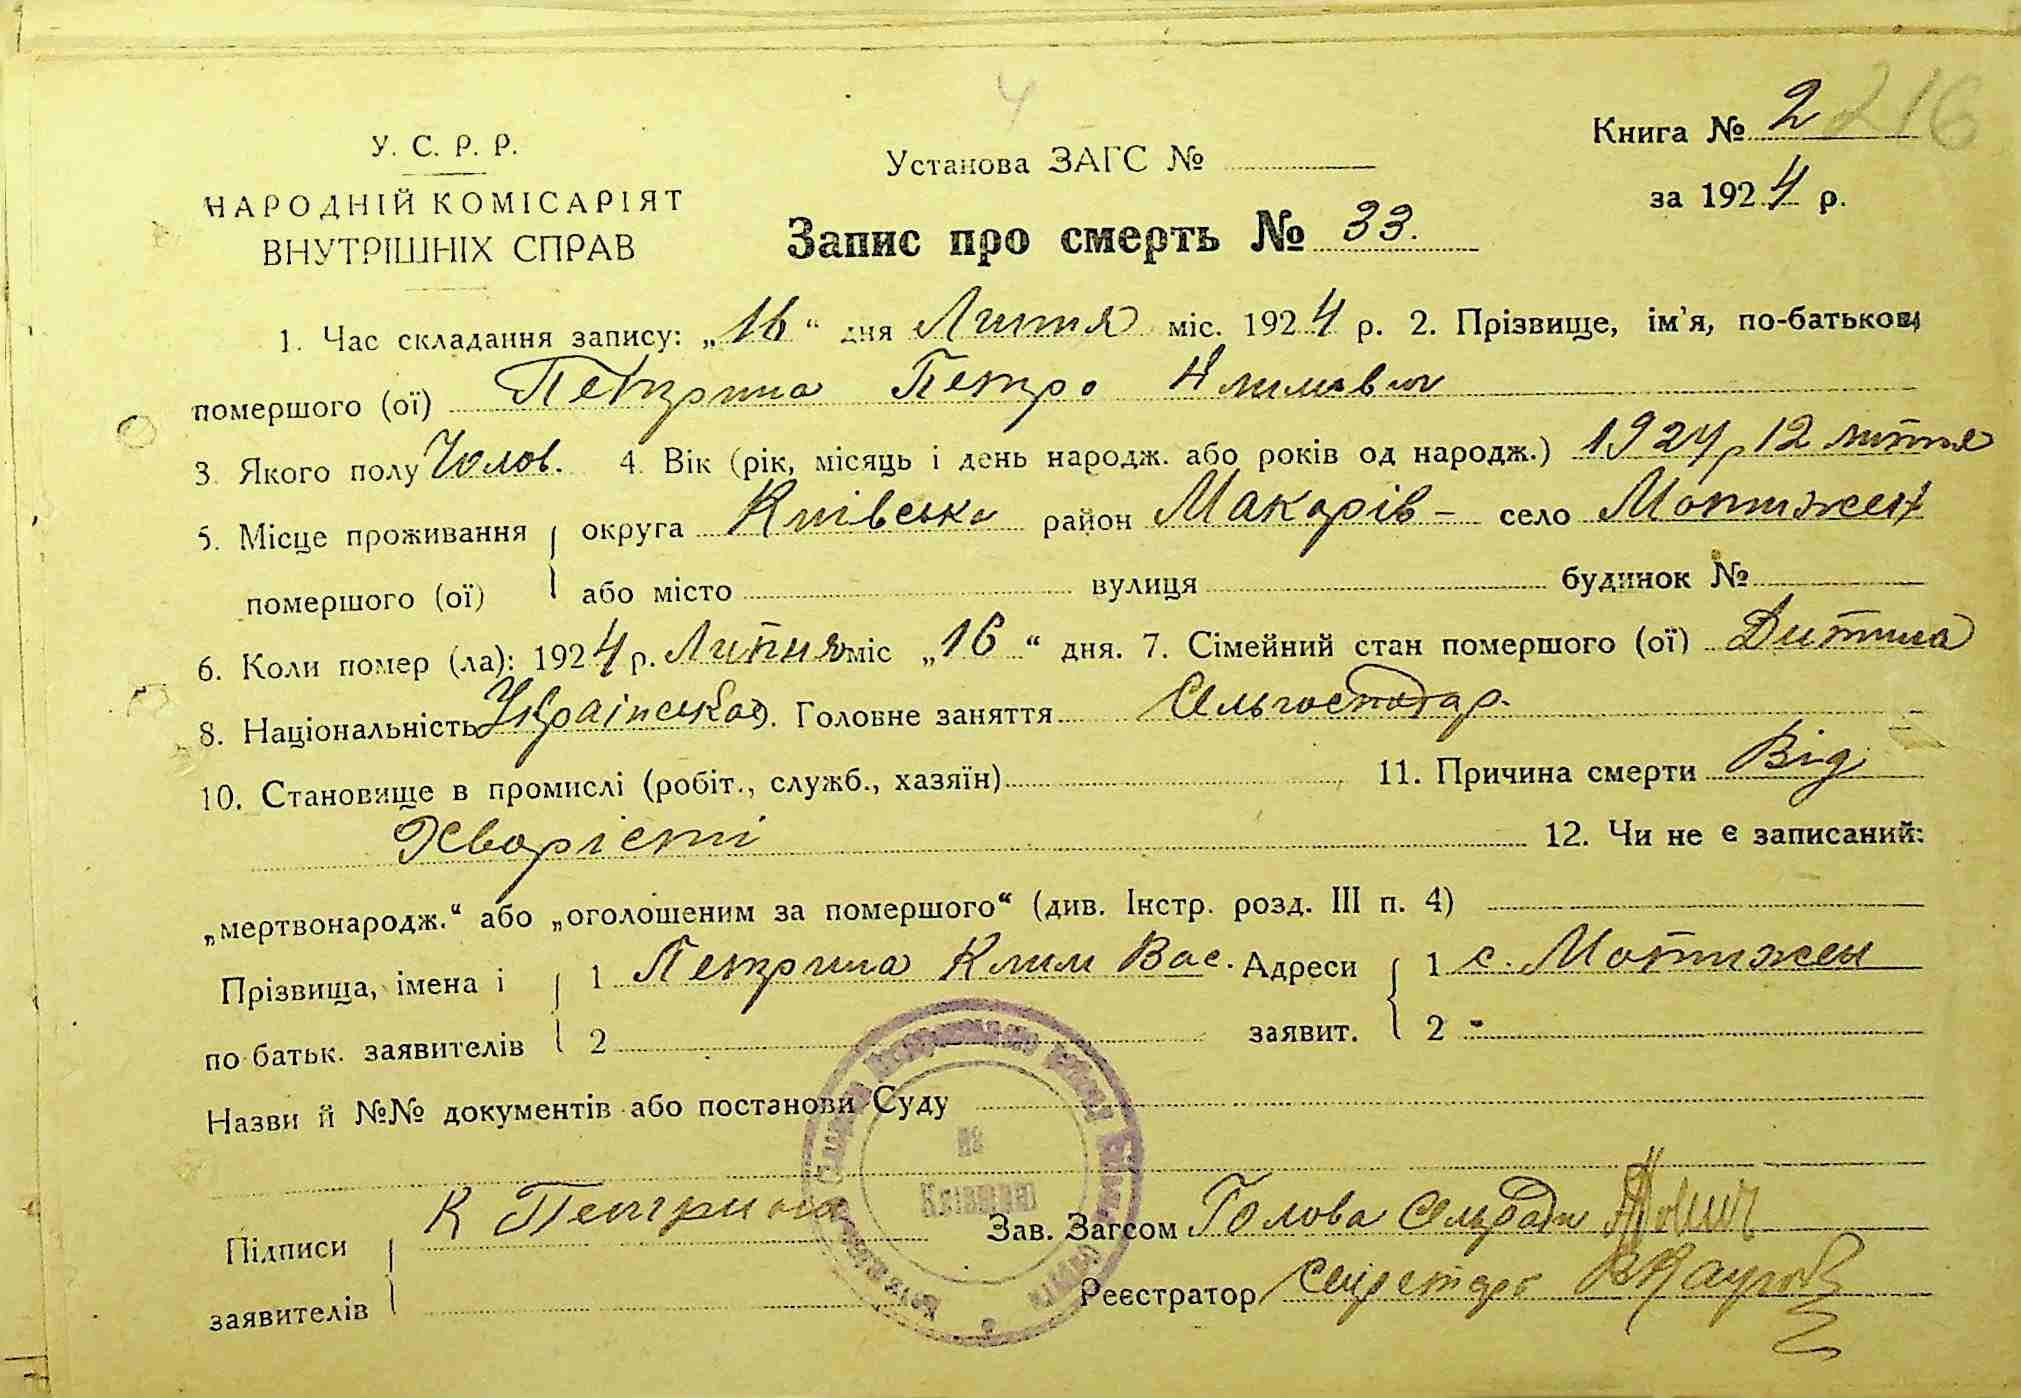 4
У. С. Р. Р.
НАРОДНІЙ КОМІСАРІЯТ
ВНУТРІШНІХ СПРАВ
Установа ЗАГС №
Книга № 2 216
за 1924 р.
Запис про смерть № 33.
1. Час складання запису: „16“ дня Липня міс. 1924 р. 2. Прізвище, ім'я, по-батькові
помершого (ої) Петрина Петро Климович
3. Якого полу Чолов. 4. Вік (рік, місяць і день народж. або років од народж.) 1924 р 12 липня
5. Місце проживання округа Київська район Макарів – село Мотижен
помершого (ої) або місто вулиця будинок №
6. Коли помер (ла): 1924 р. Липня міс „16“ дня. 7. Сімейний стан помершого (ої) Дитина
8. Національність Українська 9. Головне заняття Сельгосподар.
10. Становище в промислі (робіт., служб., хазяїн) 11. Причина смерти Від
Хворісті 12. Чи не є записаний:
„мертвонародж.“ або „оголошеним за помершого“ (див. Інстр. розд. III п. 4)
Прізвища, імена і 1 Петрина Клим Вас. Адреси 1 с. Мотижен
по батьк. заявителів 2 заявит. 2 -
Назви й №№ документів або постанови Суду
Підписи К Петрина Зав. Загсом Голова Сельради
заявителів Реєстратор Секретарь
на
Київщині